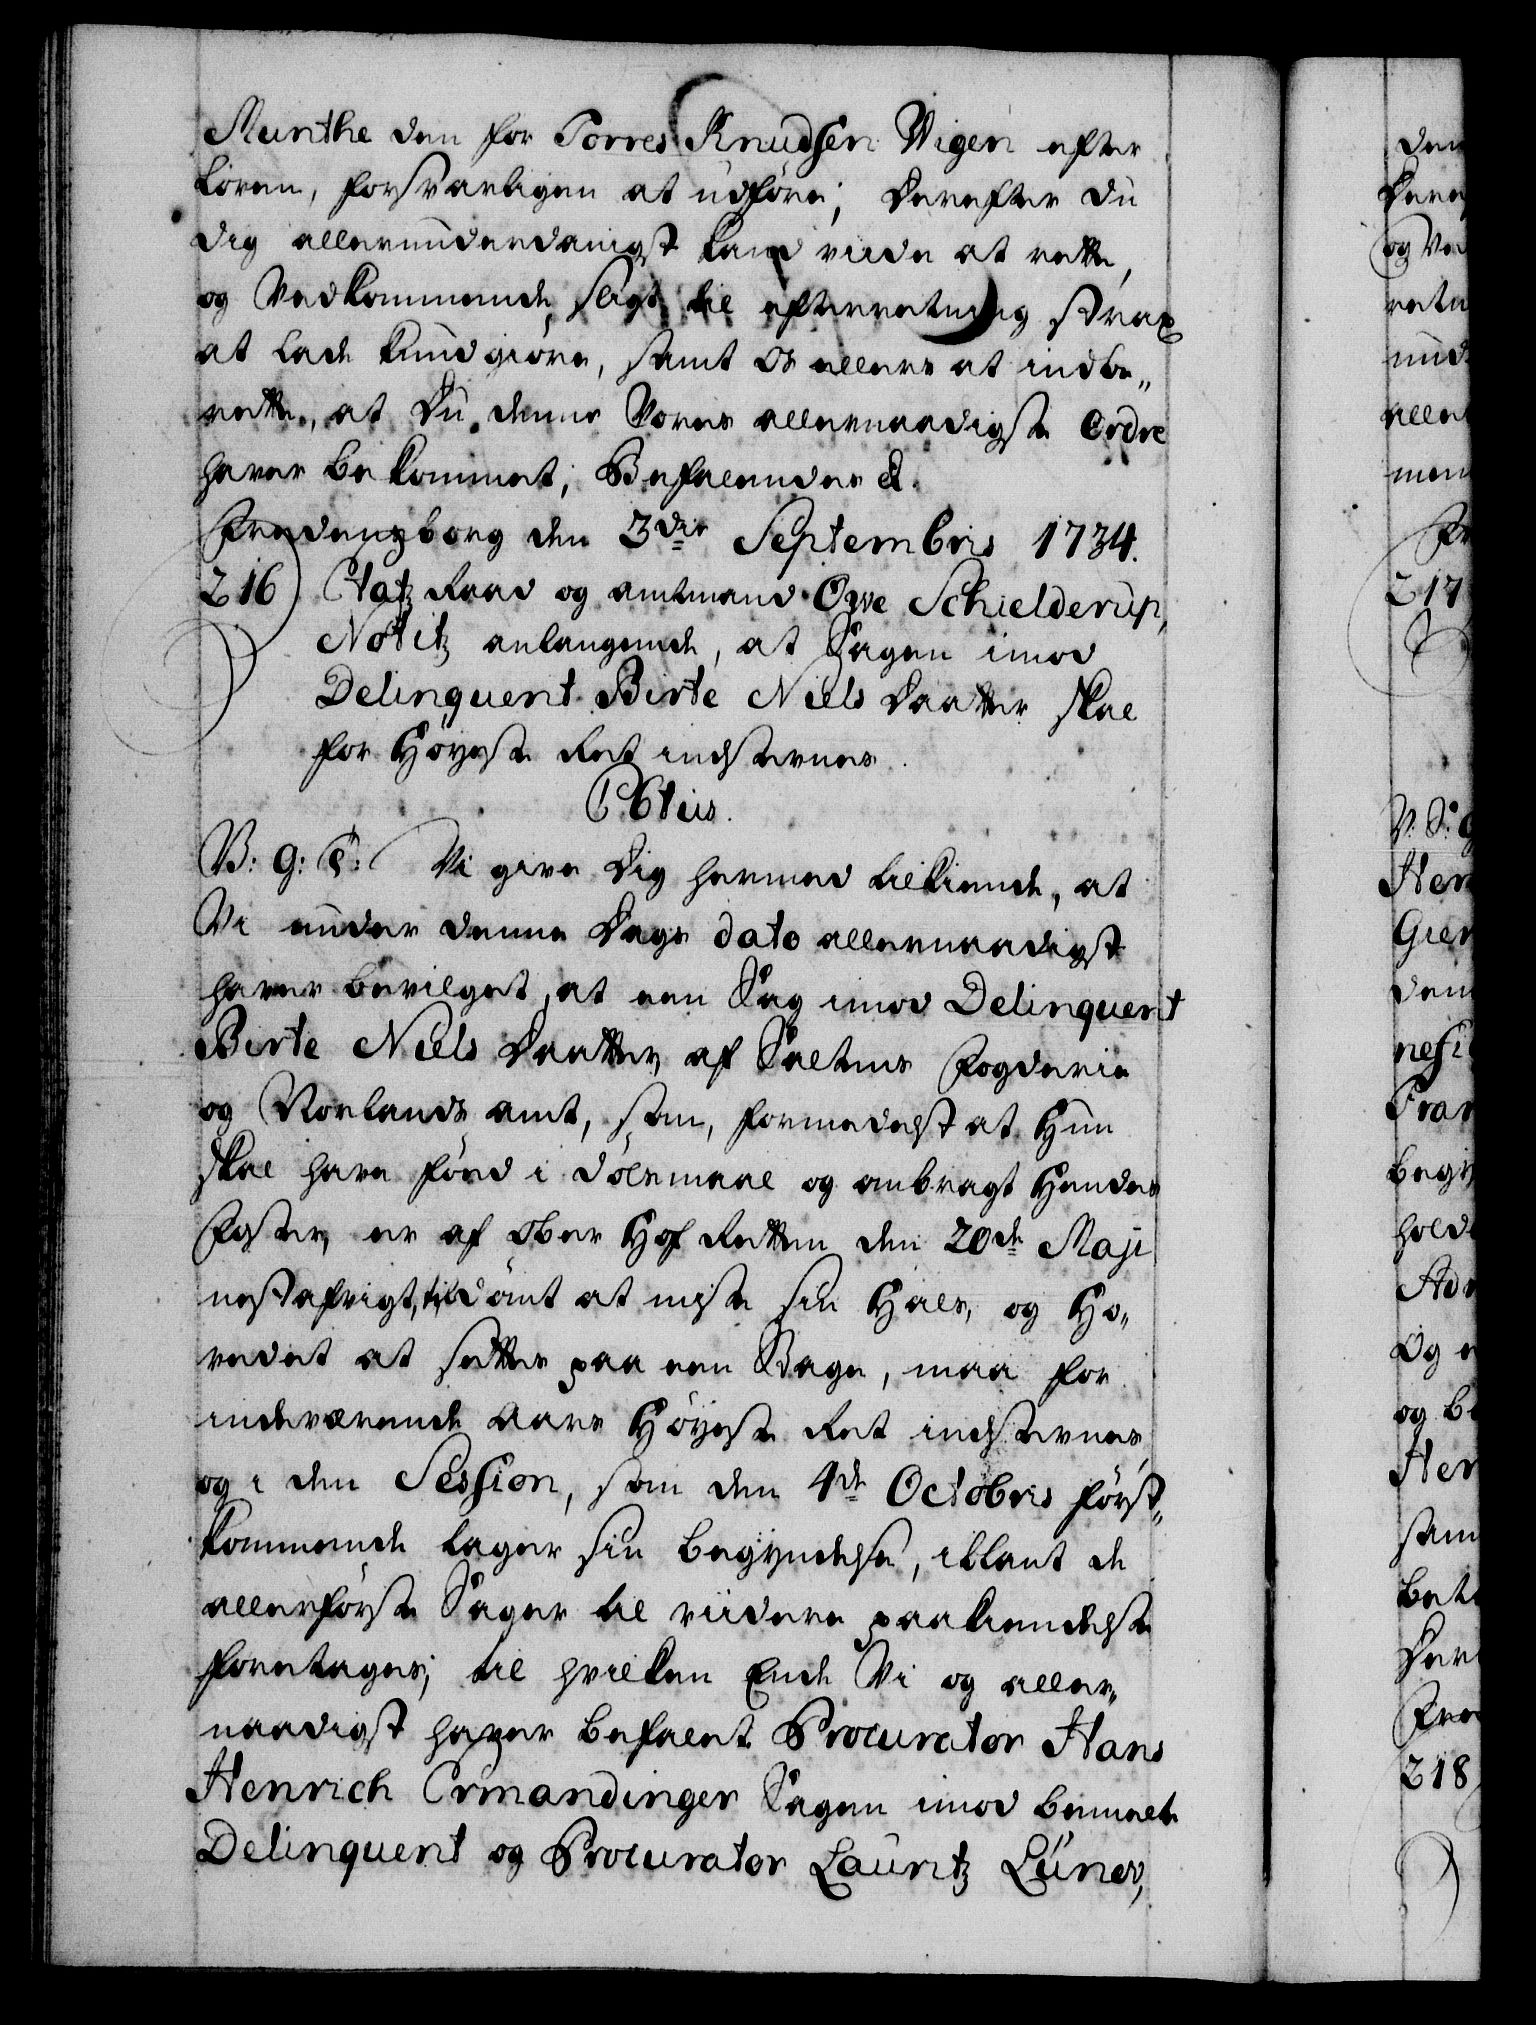 Munthe den for Torres Knudsen Wigen efter
Loven, forsvarligen at udføre; Derefter du
dig allerunderdanigst kand viide at rette,
og Vedkommende sligt til efterretning strax
at lade kundgiøre, samt Os ellers at indbe„
rette, at Du denne Vores allernaadigste Ordre
haver bekommet; Befalendes &.
Fredensborg den 3die Septembris 1734.
216) Etatz Raad og amtmand Owe Schielderup,
Notitz anlangende, at Sagen imod
Delinquent Birte Niels Daatter skal
for Høyeste Ret indstevnes.
C 6tus.
V: G: T: Vi give Dig hermed tilkiende, at
Vi under denne Dags dato allernaadigst
haver bevilget, at een Sag imod Delinquent
Birte Niels Daatter, af Saltens Fogderie
og Norlands amt, som, formedelst at Hun
skal have fød i dølsmaal og ombragt Hendes
Foster, er af Ober Hof Retten den 20de Maji
nestafvigt, tildømt at miste sin Hals, og Ho„
vedet at settes paa een Stage, maa for
indeværende Aars Høyeste Ret indstevnes,
og i den Session, som den 4de Octobris først„
kommende tager sin begyndelse, iblant de
allerførste Sager til viidere paakiendelse
foretages; til hvilken Ende Vi og aller„
naadigst haver befalet Procurator Hans
Henrich Ermandinger Sagen imod bemelte
Delinquent og Procurator Lauritz Luner,
den
Dere
og Ve
rete
und
aller
men
Fr
217
V. S: g
Hen
Gier
dem
nefi
Fran
begy
hold
Adv
Og e
og be
Hen
sam
bet
Der
Fre
218